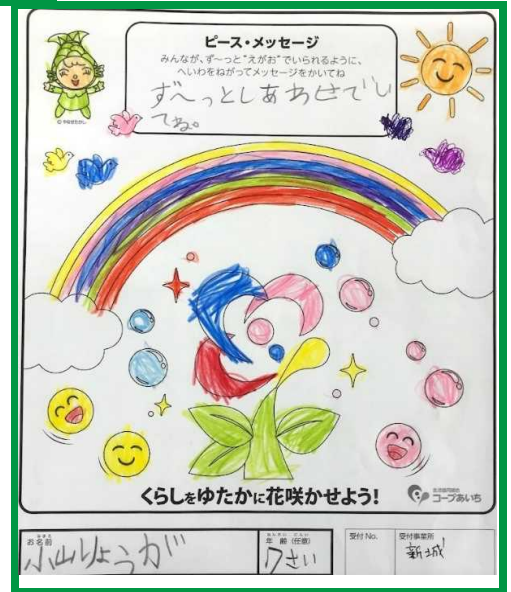 ピース・メッセージ
みんなが、ず〜っと“えがお”でいられるように、
へいわをねがってメッセージをかいてね
ず〜っとしあわせでい
てね。
©やなせたかし
くらしをゆたかに花咲かせよう!
生活協同組合
コープあいち
お名前
小山りょうが
年齢(任意)
7さい
受付No.
受付事業所
新城